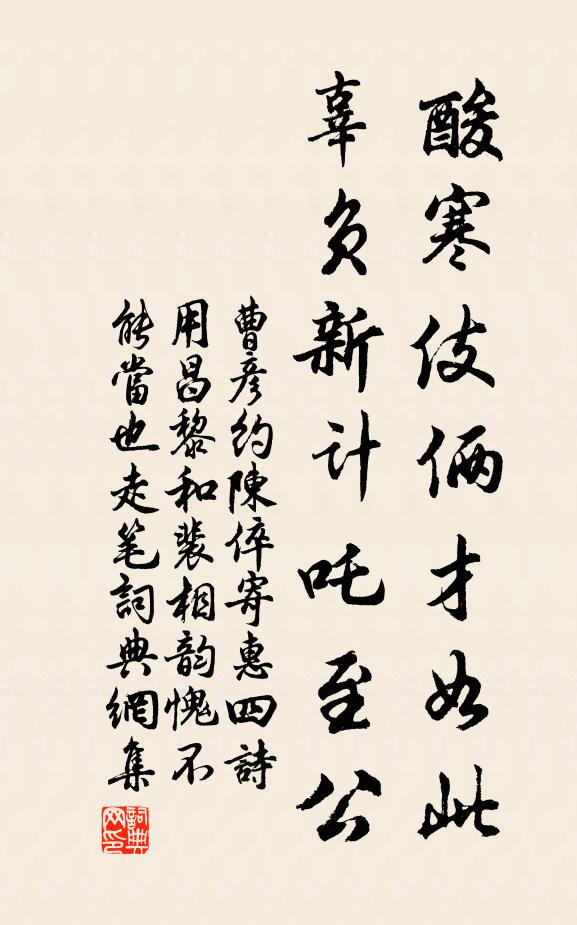 酸寒伎俩才如此
辜负新计吒至公
曹彦约陳倅寄惠四詩
用昌黎和裴相韵愧不
能當也走笔詞典網集
詞典
网印